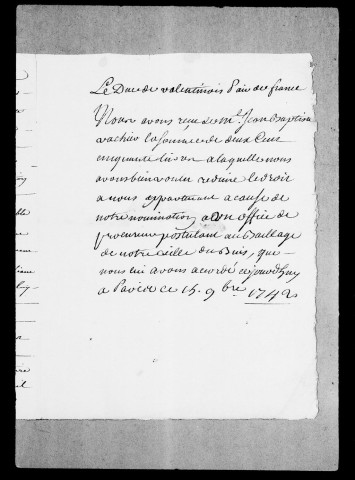 Le Duc de valentinois Pair de france
Nous avons reçu de mr. Jean Baptiste
vachier la somme de deux Cens
cinquante livres a laquelle nous
avons bien voulu reduire le droit
a nous appartenant a cause de
notre nomination a un office de
procureur postulant au Baillage
de notre ville du Buis, que
nous lui avons acordé cejourdhuy
a Paris ce 15. 9bre. 1742